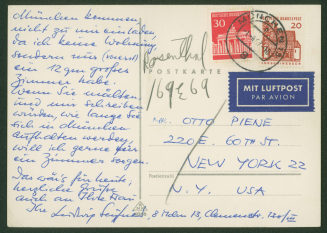 München kommen,
nicht zu uns einladen
da ich keine Wohnung
sondern nur (vorerst)
ein 12 qm großes
Zimmer habe.
Wenn Sie möchten
und uns schreiben
würden, wie lange Sie
sich in München
aufhalten werden,
will ich gerne für
ein Zimmer sorgen.
Das wärs für heute,
herzliche Grüße
auch an Ihre Frau
Ihr
Rosenthal
POSTKARTE
30
20
DEUTSCHE BUNDESPOST
MIT LUFTPOST
PAR AVION
MR. OTTO PIENE
220 E. 60TH ST.
NEW YORK 22
N.Y. USA
Postleitzahl
8 Mchn 13, Clemensstr.